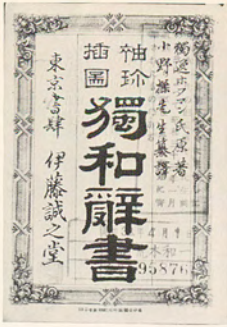 獨逸ホフマン氏原著
小野操先生纂譯
袖珍
插圖
獨和辭書
東京書肆 伊藤誠之堂
95876